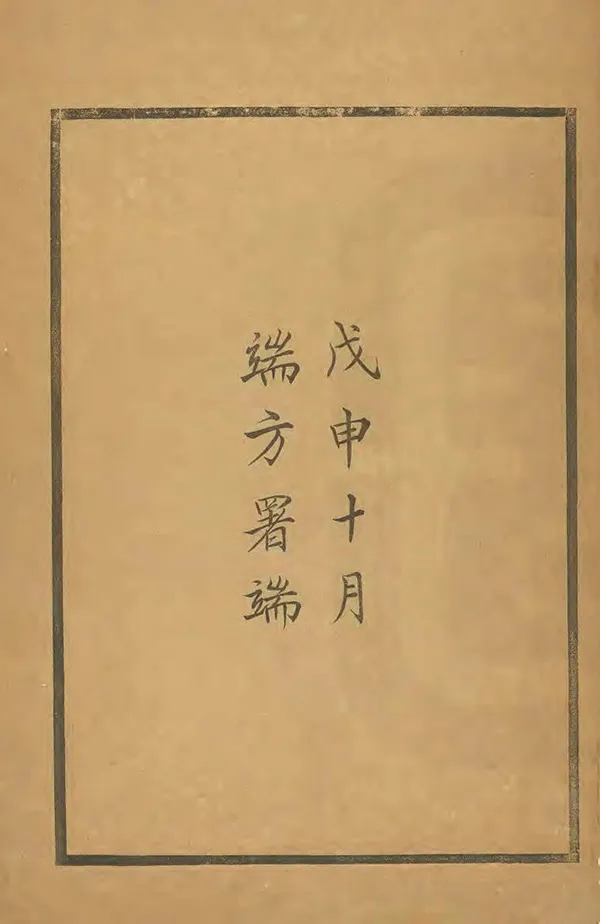 戊申十月
端方署端